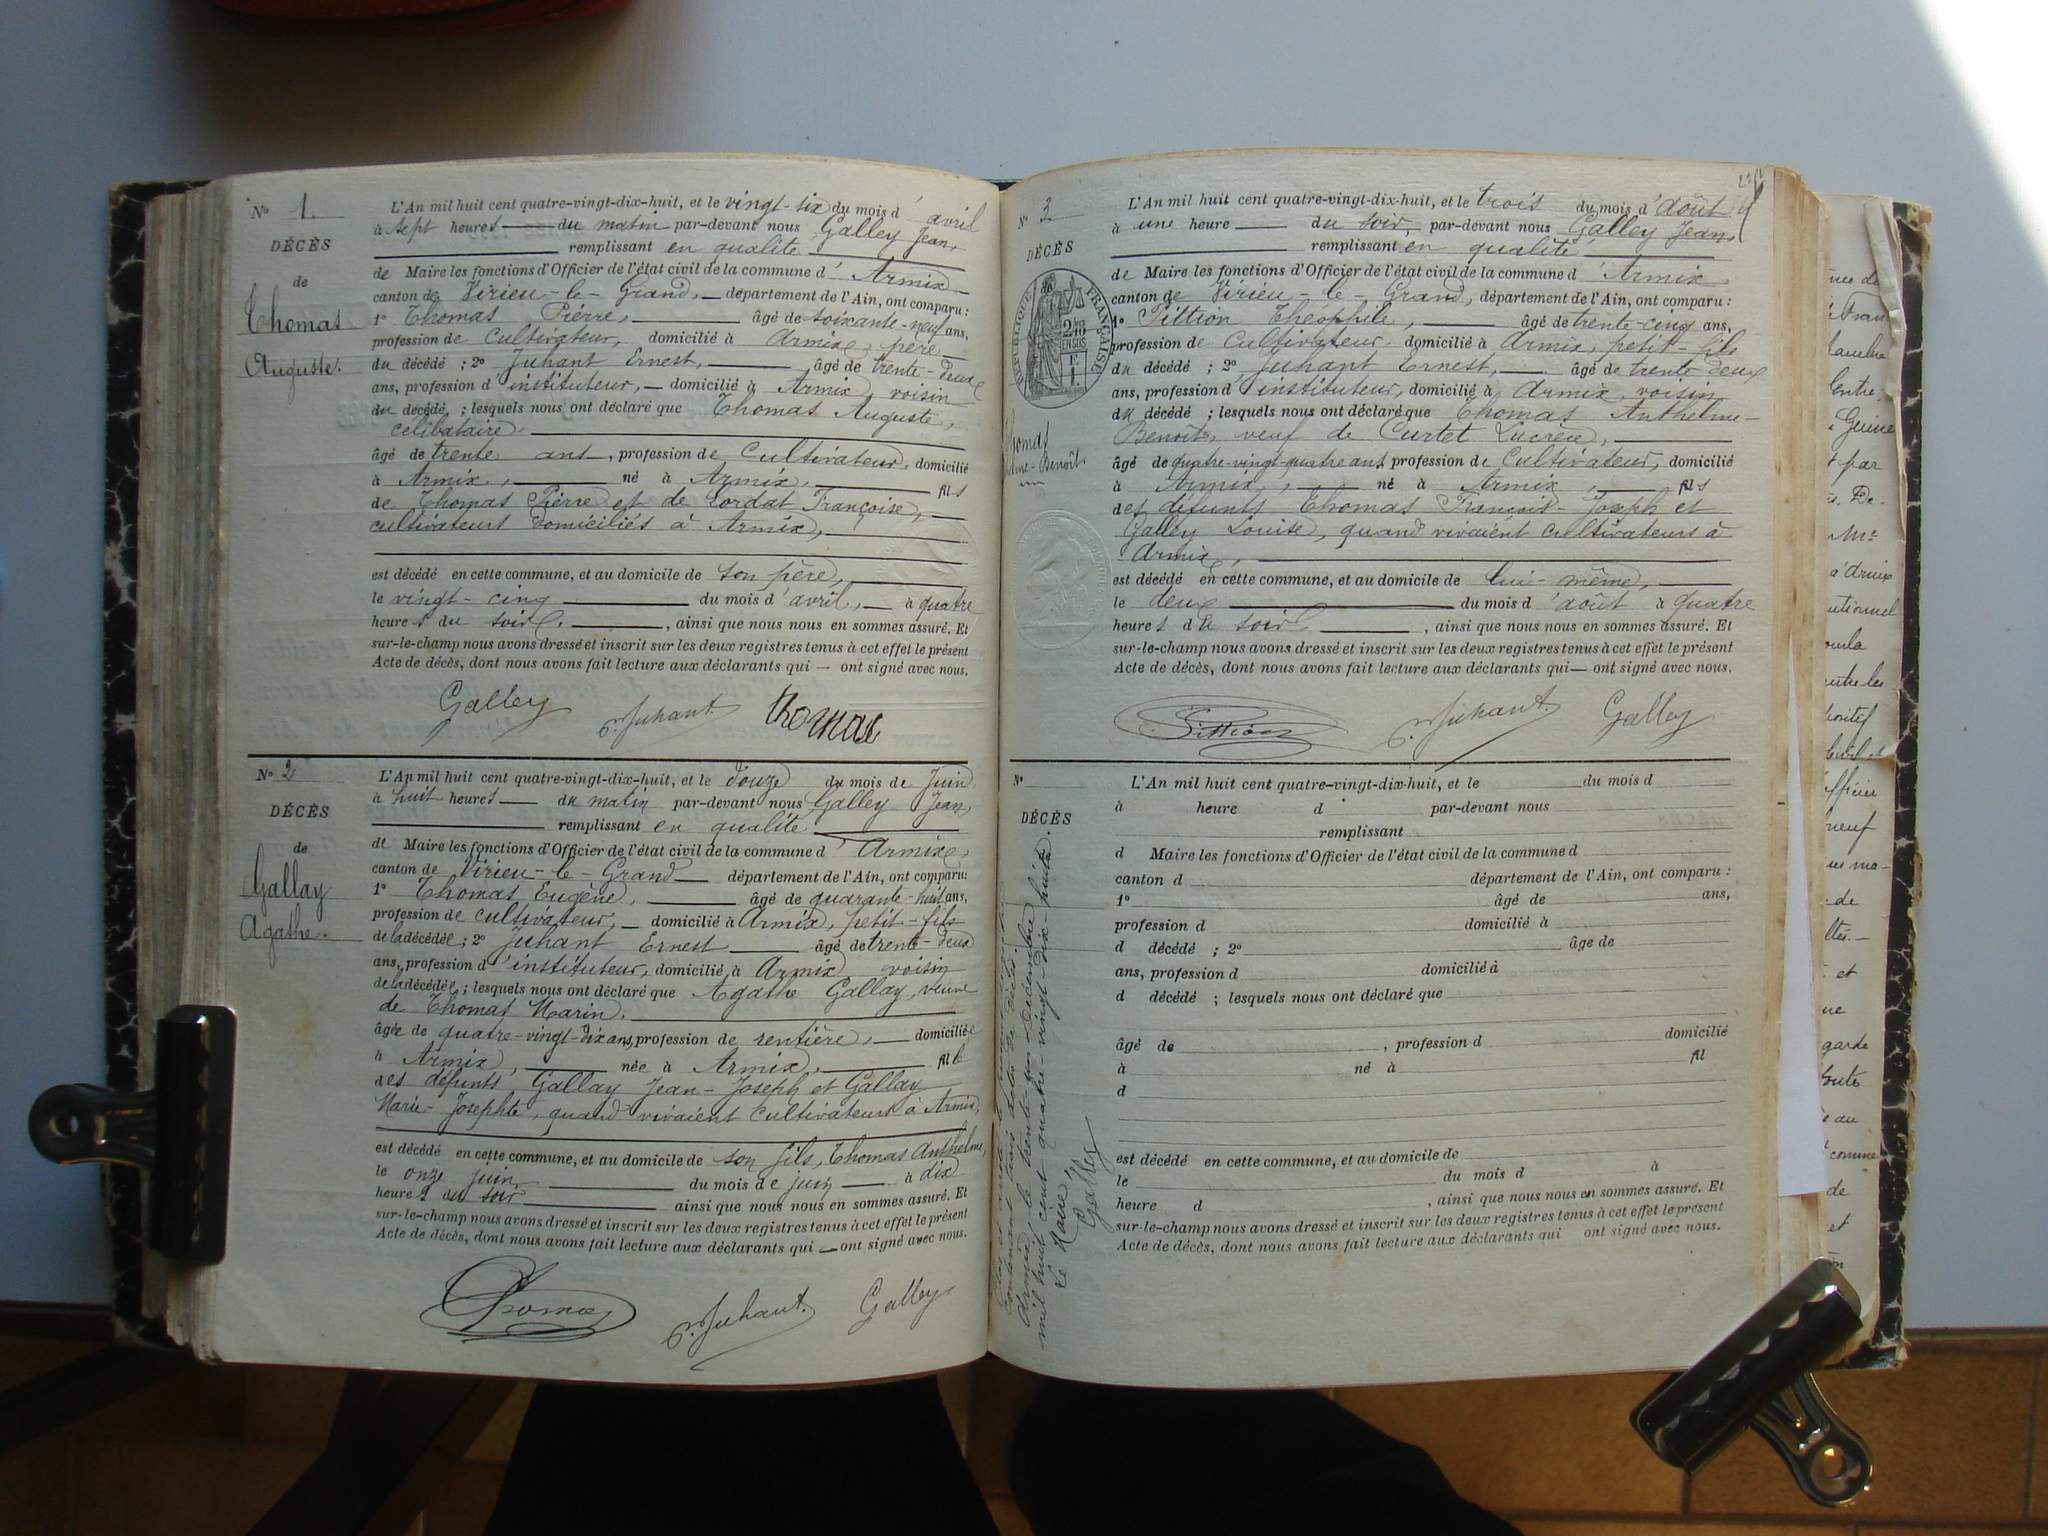 Nº 1.
DÉCÈS
de
Thomas
Auguste.
L'An mil huit cent quatre-vingt-dix-huit, et le vingt-six du mois d'avril
à sept heures du matin par-devant nous Galley Jean,
remplissant en qualité
de Maire les fonctions d'Officier de l'état civil de la commune d'Armix
canton de Virieu-le-Grand, département de l'Ain, ont comparu :
1º Thomas Pierre, âgé de soixante-neuf ans,
profession de cultivateur, domicilié à Armix, père
du décédé ; 2º Juhant Ernest, âgé de trente-deux
ans, profession d'instituteur, domicilié à Armix, voisin
du décédé, ; lesquels nous ont déclaré que Thomas Auguste,
célibataire.
âgé de trente ans, profession de cultivateur, domicilié
à Armix, né à Armix, fils
de Thomas Pierre et de Cordat Françoise,
cultivateurs domiciliés à Armix,
est décédé en cette commune, et au domicile de son père,
le vingt-cinq du mois d'avril, à quatre
heures du soir, ainsi que nous nous en sommes assuré. Et
sur-le-champ nous avons dressé et inscrit sur les deux registres tenus à cet effet le présent
Acte de décès, dont nous avons fait lecture aux déclarants qui ont signé avec nous.
Galley Juhant Thomas
Nº 2
DÉCÈS
de
Gallay
Agathe.
L'An mil huit cent quatre-vingt-dix-huit, et le douze du mois de Juin
à huit heures du matin par-devant nous Galley Jean,
remplissant en qualité
de Maire les fonctions d'Officier de l'état civil de la commune d'Armix,
canton de Virieu-le-Grand département de l'Ain, ont comparu:
1º Thomas Eugène, âgé de quarante-huit ans,
profession de cultivateur, domicilié à Armix, petit-fils
de la décédée ; 2º Juhant Ernest âgé de trente-deux
ans, profession d'instituteur, domicilié à Armix voisin
de la décédée ; lesquels nous ont déclaré que Agathe Gallay, veuve
de Thomas Marin.
âgée de quatre-vingt-dix ans, profession de rentière, domiciliée
à Armix, née à Armix, fille
des défunts Gallay Jean-Joseph et Gallay
Marie-Josephte, quand vivaient cultivateurs à Armix,
est décédé en cette commune, et au domicile de son fils, Thomas Anthelme,
le onze juin du mois de juin à dix
heures du soir ainsi que nous nous en sommes assuré. Et
sur-le-champ nous avons dressé et inscrit sur les deux registres tenus à cet effet le présent
Acte de décès, dont nous avons fait lecture aux déclarants qui ont signé avec nous.
Thomas Juhant Galley
Nº 3
DÉCÈS
de
RÉPUBLIQUE FRANÇAISE
Thomas
Benoît.
L'An mil huit cent quatre-vingt-dix-huit, et le trois du mois d'août
à une heure du soir, par-devant nous Galley Jean,
remplissant en qualité
de Maire les fonctions d'Officier de l'état civil de la commune d'Armix
canton de Virieu-le-Grand, département de l'Ain, ont comparu :
1º Pittion Théophile, âgé de trente-cinq ans,
profession de cultivateur, domicilié à Armix, petit-fils
du décédé ; 2º Juhant Ernest, âgé de trente deux
ans, profession d'instituteur, domicilié à Armix, voisin
du décédé ; lesquels nous ont déclaré que Thomas Anthelme-
Benoît, veuf de Curtet Lucrèce,
âgé de quatre-vingt-quatre ans, profession de cultivateur, domicilié
à Armix, né à Armix, fils
des défunts Thomas François-Joseph et
Galley Louise, quand vivaient cultivateurs à
Armix,
est décédé en cette commune, et au domicile de lui-même,
le deux du mois d'août à quatre
heures du soir, ainsi que nous nous en sommes assuré. Et
sur-le-champ nous avons dressé et inscrit sur les deux registres tenus à cet effet le présent
Acte de décès, dont nous avons fait lecture aux déclarants qui ont signé avec nous.
Pittion Juhant Galley
Nº
DÉCÈS
L'An mil huit cent quatre-vingt-dix-huit, et le du mois d
à heure d par-devant nous
remplissant
d Maire les fonctions d'Officier de l'état civil de la commune d
canton d département de l'Ain, ont comparu :
1º âgé de ans,
profession d domicilié à
d décédé ; 2º âge de
ans, profession d domicilié à
d décédé ; lesquels nous ont déclaré que
âgé de , profession d domicilié
à né à fil
d
est décédé en cette commune, et au domicile de
le du mois d à
heure d , ainsi que nous nous en sommes assuré. Et
sur-le-champ nous avons dressé et inscrit sur les deux registres tenus à cet effet le présent
Acte de décès, dont nous avons fait lecture aux déclarants qui ont signé avec nous.
Armix, le trente-un décembre
mil huit cent quatre-vingt-dix-huit.
Le Maire,
Galley